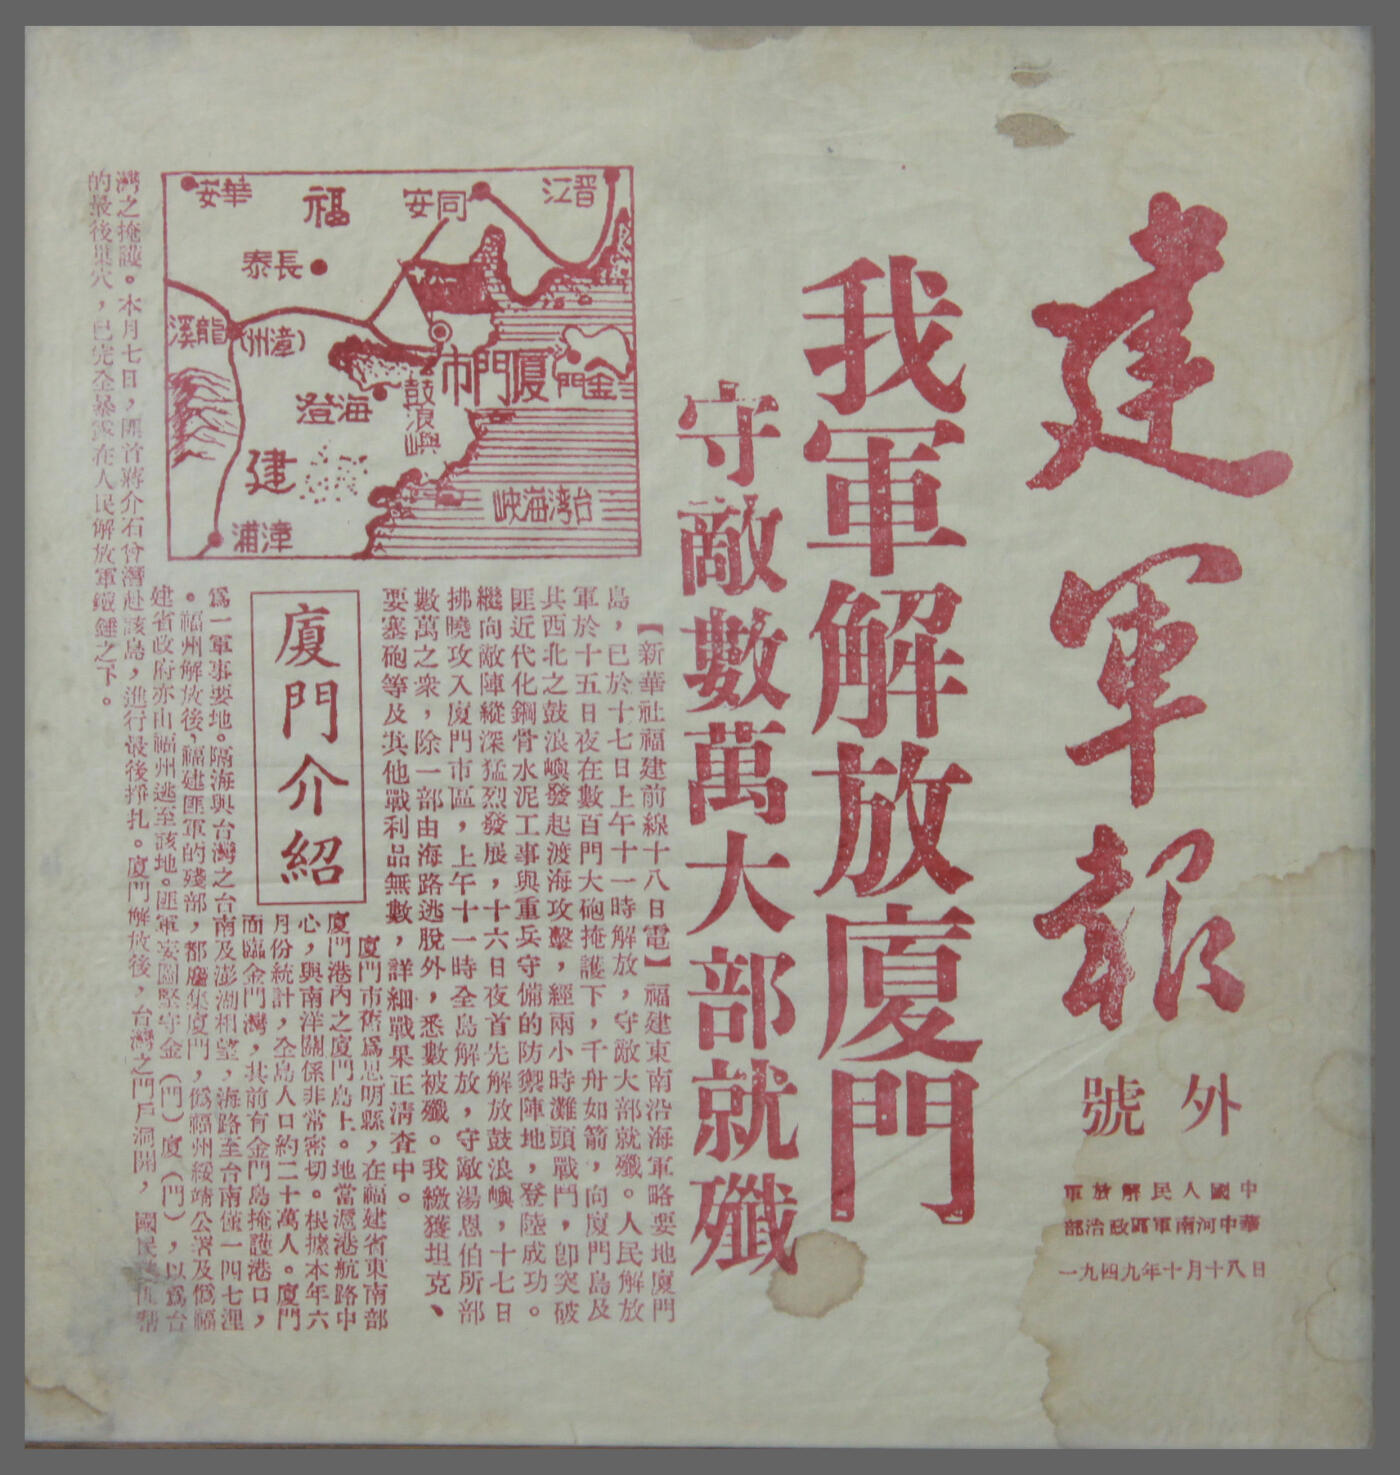 建軍報
號外
中國人民解放軍
華中河南軍區政治部
一九四九年十月十八日
我軍解放廈門
守敵數萬大部就殲
【新華社福建前線十八日電】福建東南沿海軍略要地廈門
島，已於十七日上午十一時解放，守敵大部就殲。人民解放
軍於十五日夜在數百門大砲掩護下，千舟如箭，向廈門島及
其西北之鼓浪嶼發起渡海攻擊，經兩小時灘頭戰鬥，卽突破
匪近代化鋼骨水泥工事與重兵守備的防禦陣地，登陸成功。
繼向敵陣縱深猛烈發展，十六日夜首先解放鼓浪嶼，十七日
拂曉攻入廈門市區，上午十一時全島解放，守敵湯恩伯所部
數萬之衆，除一部由海路逃脫外，悉數被殲。我繳獲坦克、
要塞砲等及其他戰利品無數，詳細戰果正清查中。
晉江
同安
福
華安
長泰
龍溪
(漳州)
廈門市
金門
鼓浪嶼
海澄
建
漳浦
台湾海峽
廈門介紹
廈門市舊爲思明縣，在福建省東南部
廈門港內之廈門島上。地當滬港航路中
心，與南洋關係非常密切。根據本年六
月份統計，全島人口約二十萬人。廈門
面臨金門灣，其前有金門島掩護港口，
爲一軍事要地。隔海與台灣之台南及澎湖相望，海路至台南僅一四七浬
。福州解放後，福建匪軍的殘部，都麕集廈門，僞福州綏靖公署及僞福
建省政府亦由福州逃至該地。匪軍妄圖堅守金（門）廈（門），以爲台
灣之掩護。本月七日，匪首蔣介石曾潛赴該島，進行最後掙扎。廈門解放後，台灣之門戶洞開，國民
的最後巢穴，已完全暴露在人民解放軍錘之下。